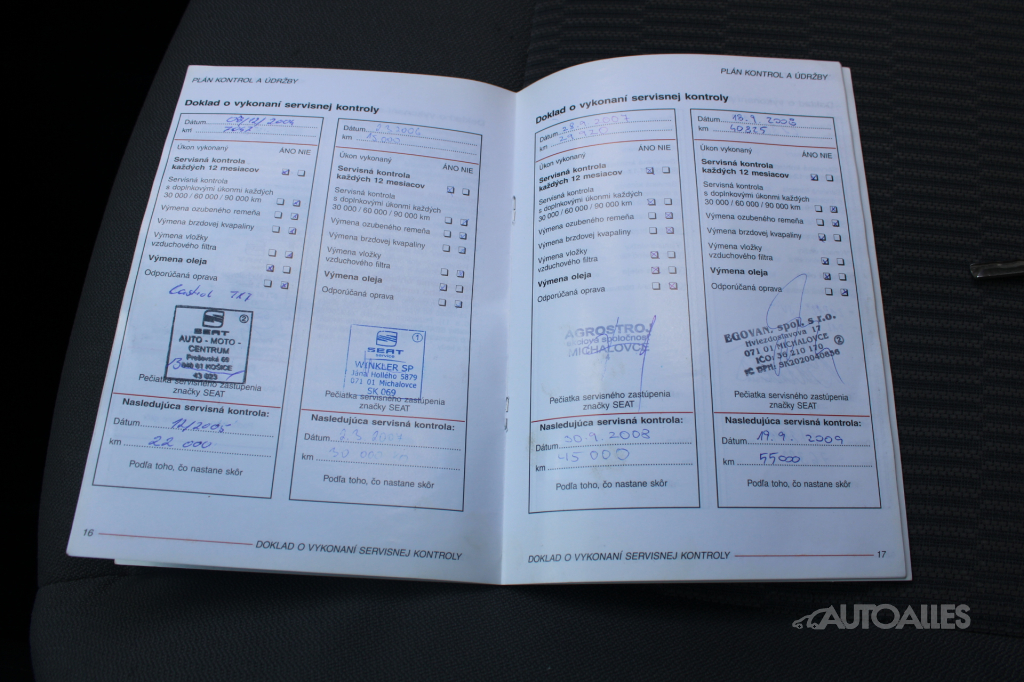 PLÁN KONTROL A ÚDRŽBY
Doklad o vykonaní servisnej kontroly
Dátum
km
Úkon vykonaný ÁNO NIE
Servisná kontrola
každých 12 mesiacov
Servisná kontrola
s doplnkovými úkonmi každých
30 000 / 60 000 / 90 000 km
Výmena ozubeného remeňa
Výmena brzdovej kvapaliny
Výmena vložky
vzduchového filtra
Výmena oleja
Odporúčaná oprava
Castrol
SEAT
AUTO - MOTO -
CENTRUM
Prešovská 65
040 01 KOŠICE
43 023
2
Pečiatka servisného zastúpenia
značky SEAT
Nasledujúca servisná kontrola:
Dátum 12/2005
km 22 000
Podľa toho, čo nastane skôr
Dátum
km 15 000
Úkon vykonaný ÁNO NIE
Servisná kontrola
každých 12 mesiacov
Servisná kontrola
s doplnkovými úkonmi každých
30 000 / 60 000 / 90 000 km
Výmena ozubeného remeňa
Výmena brzdovej kvapaliny
Výmena vložky
vzduchového filtra
Výmena oleja
Odporúčaná oprava
1
SEAT
service
WINKLER SP
Jána Hollého 5879
071 01 Michalovce
SK 069
Pečiatka servisného zastúpenia
značky SEAT
Nasledujúca servisná kontrola:
Dátum
km 30 000
Podľa toho, čo nastane skôr
16
DOKLAD O VYKONANÍ SERVISNEJ KONTROLY
PLÁN KONTROL A ÚDRŽBY
Doklad o vykonaní servisnej kontroly
Dátum 28.9.2007
km 29.920
Úkon vykonaný ÁNO NIE
Servisná kontrola
každých 12 mesiacov
Servisná kontrola
s doplnkovými úkonmi každých
30 000 / 60 000 / 90 000 km
Výmena ozubeného remeňa
Výmena brzdovej kvapaliny
Výmena vložky
vzduchového filtra
Výmena oleja
Odporúčaná oprava
AGROSTROJ
spoločnosť
MICHALOVCE
Pečiatka servisného zastúpenia
značky SEAT
Nasledujúca servisná kontrola:
Dátum 30.9.2008
km 45 000
Podľa toho, čo nastane skôr
Dátum 18.9.2008
km 40325
Úkon vykonaný ÁNO NIE
Servisná kontrola
každých 12 mesiacov
Servisná kontrola
s doplnkovými úkonmi každých
30 000 / 60 000 / 90 000 km
Výmena ozubeného remeňa
Výmena brzdovej kvapaliny
Výmena vložky
vzduchového filtra
Výmena oleja
Odporúčaná oprava
EGOVAN, spol. s r.o.
Hviezdoslavova 17
071 01 MICHALOVCE
IČO: 36 210 170
IČ DPH: SK2020040656
2
Pečiatka servisného zastúpenia
značky SEAT
Nasledujúca servisná kontrola:
Dátum 19.9.2009
km 55000
Podľa toho, čo nastane skôr
DOKLAD O VYKONANÍ SERVISNEJ KONTROLY
17
AUTOALLES